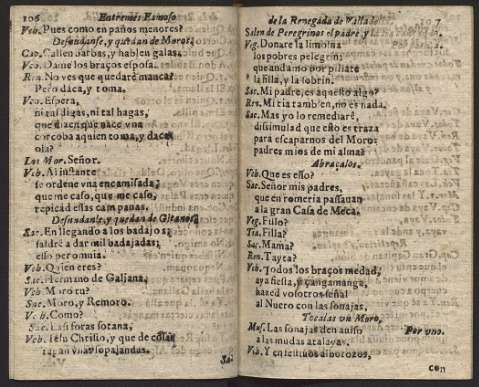 106 Entremès Famoso
Veb. Pues como en paños menores?
Desnudanse, y quedan de Moros.
Cap. Callen barbas, y hablen galas.
Veb. Dame los braços esposa.
Ren. No ves que quedarè manca?
Pero daca, y toma.
Veb. Espera,
ni tal digas, ni tal hagas,
que dizen que nace vna
corcoba aquien toma, y daca
ola?
Los Mor. Señor.
Veb. Al instante
se ordene vna encamisada,
que me caso, que me caso,
repicad essas campanas.
Desnudanse, y quedan de Gitanos,
Sac. En llegando a los badajos
saldrè a dar mil badajadas;
esso per omnia.
Veb. Quien eres?
Sac. Hermano de Galjana.
Veb. Moro tu?
Sac. Moro, y Remoro.
Veb. Como?
Sac. Las foras sotana,
Veb. Iesu Christo, y que de cosas
tapan vnas sopalandas.
Sa-
de la Renegada de Vallado
Salen de Peregrinos el padre, y la
Veg. Donare la limosina
los pobres pelegrin:
que andamo por pillare
la filla, y la sobrin.
Sac. Mi padre, es aquesto algo?
Ren. Mi tia tambien, no es nada.
Sac. Mas yo lo remediarè,
dissimulad que esto es traza
para escaparnos del Moro:
padres mios de mi alma?
Abraçalos.
Veb. Que es esso?
Sac. Señor mis padres,
que en romeria passauan
a la gran Casa de Meca.
Veg. Fillo?
Tia. Filla?
Sac. Mama?
Ren. Tayta?
Veb. Todos los braços me dad,
aya fiesta, y çangamanga,
hazed vosotros señal
al Nucro con las sonajas,
Tocalas vn Moro,
Mus. Las sonajas den auiso Por vno.
a las mudas atalayas.
Veb. Y en festiuos alborozos,
con